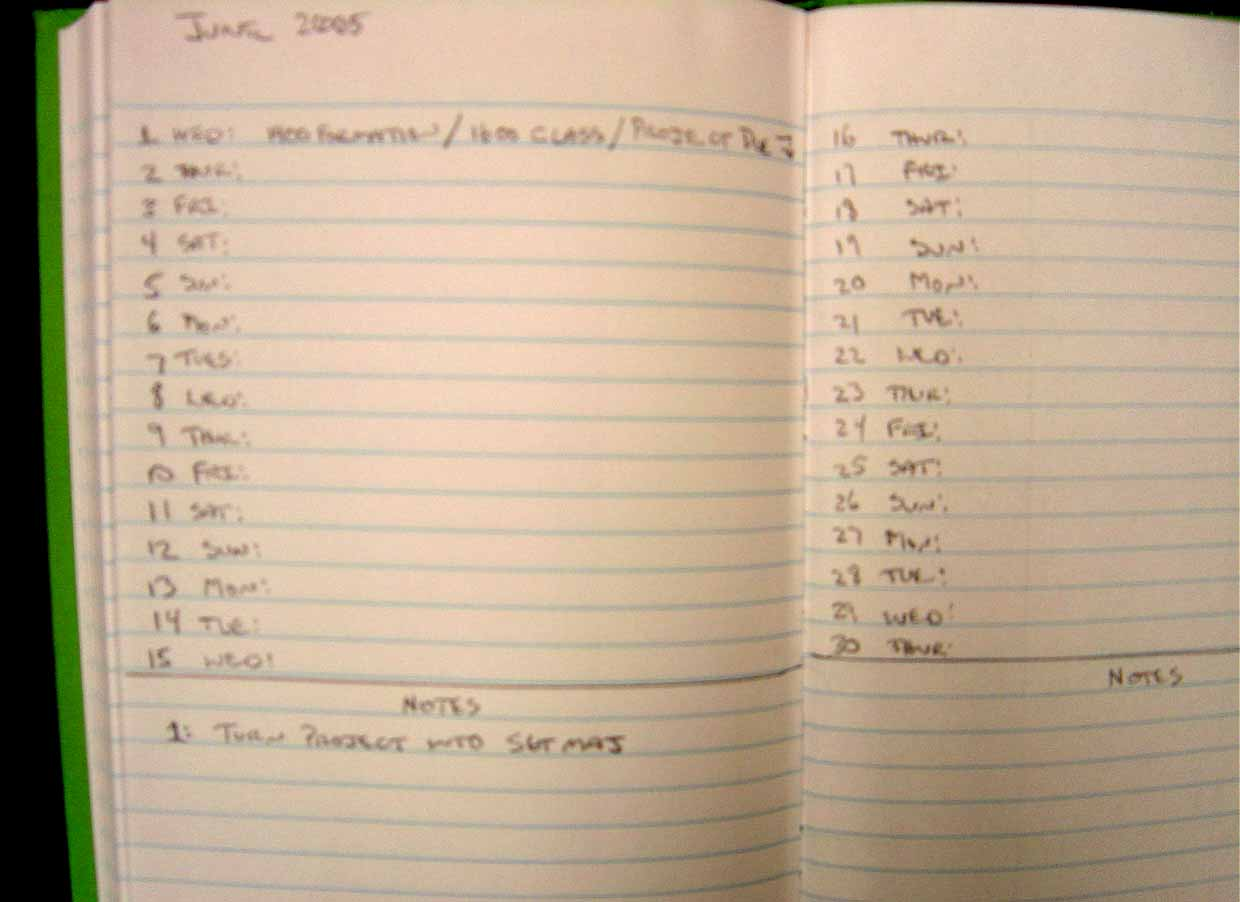 JUNE 2005
1 WED: FORMATION / 1600 CLASS / PROJECT DUE
2 THUR:
3 FRI:
4 SAT:
5 SUN:
6 MON:
7 TUES:
8 WED:
9 THUR:
10 FRI:
11 SAT:
12 SUN:
13 MON:
14 TUE:
15 WED:
NOTES
1: TURN PROJECT INTO SGT MAJ
16 THUR:
17 FRI:
18 SAT:
19 SUN:
20 MON:
21 TUE:
22 WED:
23 THUR:
24 FRI:
25 SAT:
26 SUN:
27 MON:
28 TUE:
29 WED:
30 THUR:
NOTES